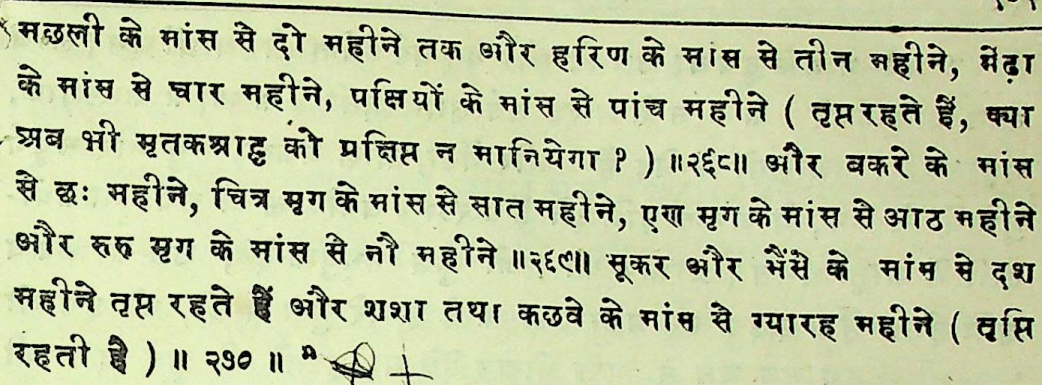 मछली के मांस से दो महीने तक और हरिण के मांस से तीन महीने, मेंढ़ा
के मांस से चार महीने, पक्षियों के मांस से पांच महीने ( तृप्त रहते हैं, क्या
अब भी मृतकश्राद्ध को प्रक्षिप्त न मानियेगा ? ) ॥२६८॥ और बकरे के मांस
से छः महीने, चित्र मृग के मांस से सात महीने, एण मृग के मांस से आठ महीने
और रुरु मृग के मांस से नौ महीने ॥२६९॥ सूकर और भैंसे के मांस से दश
महीने तृप्त रहते हैं और शशा तथा कछवे के मांस से ग्यारह महीने ( तृप्ति
रहती है ) ॥ २७० ॥